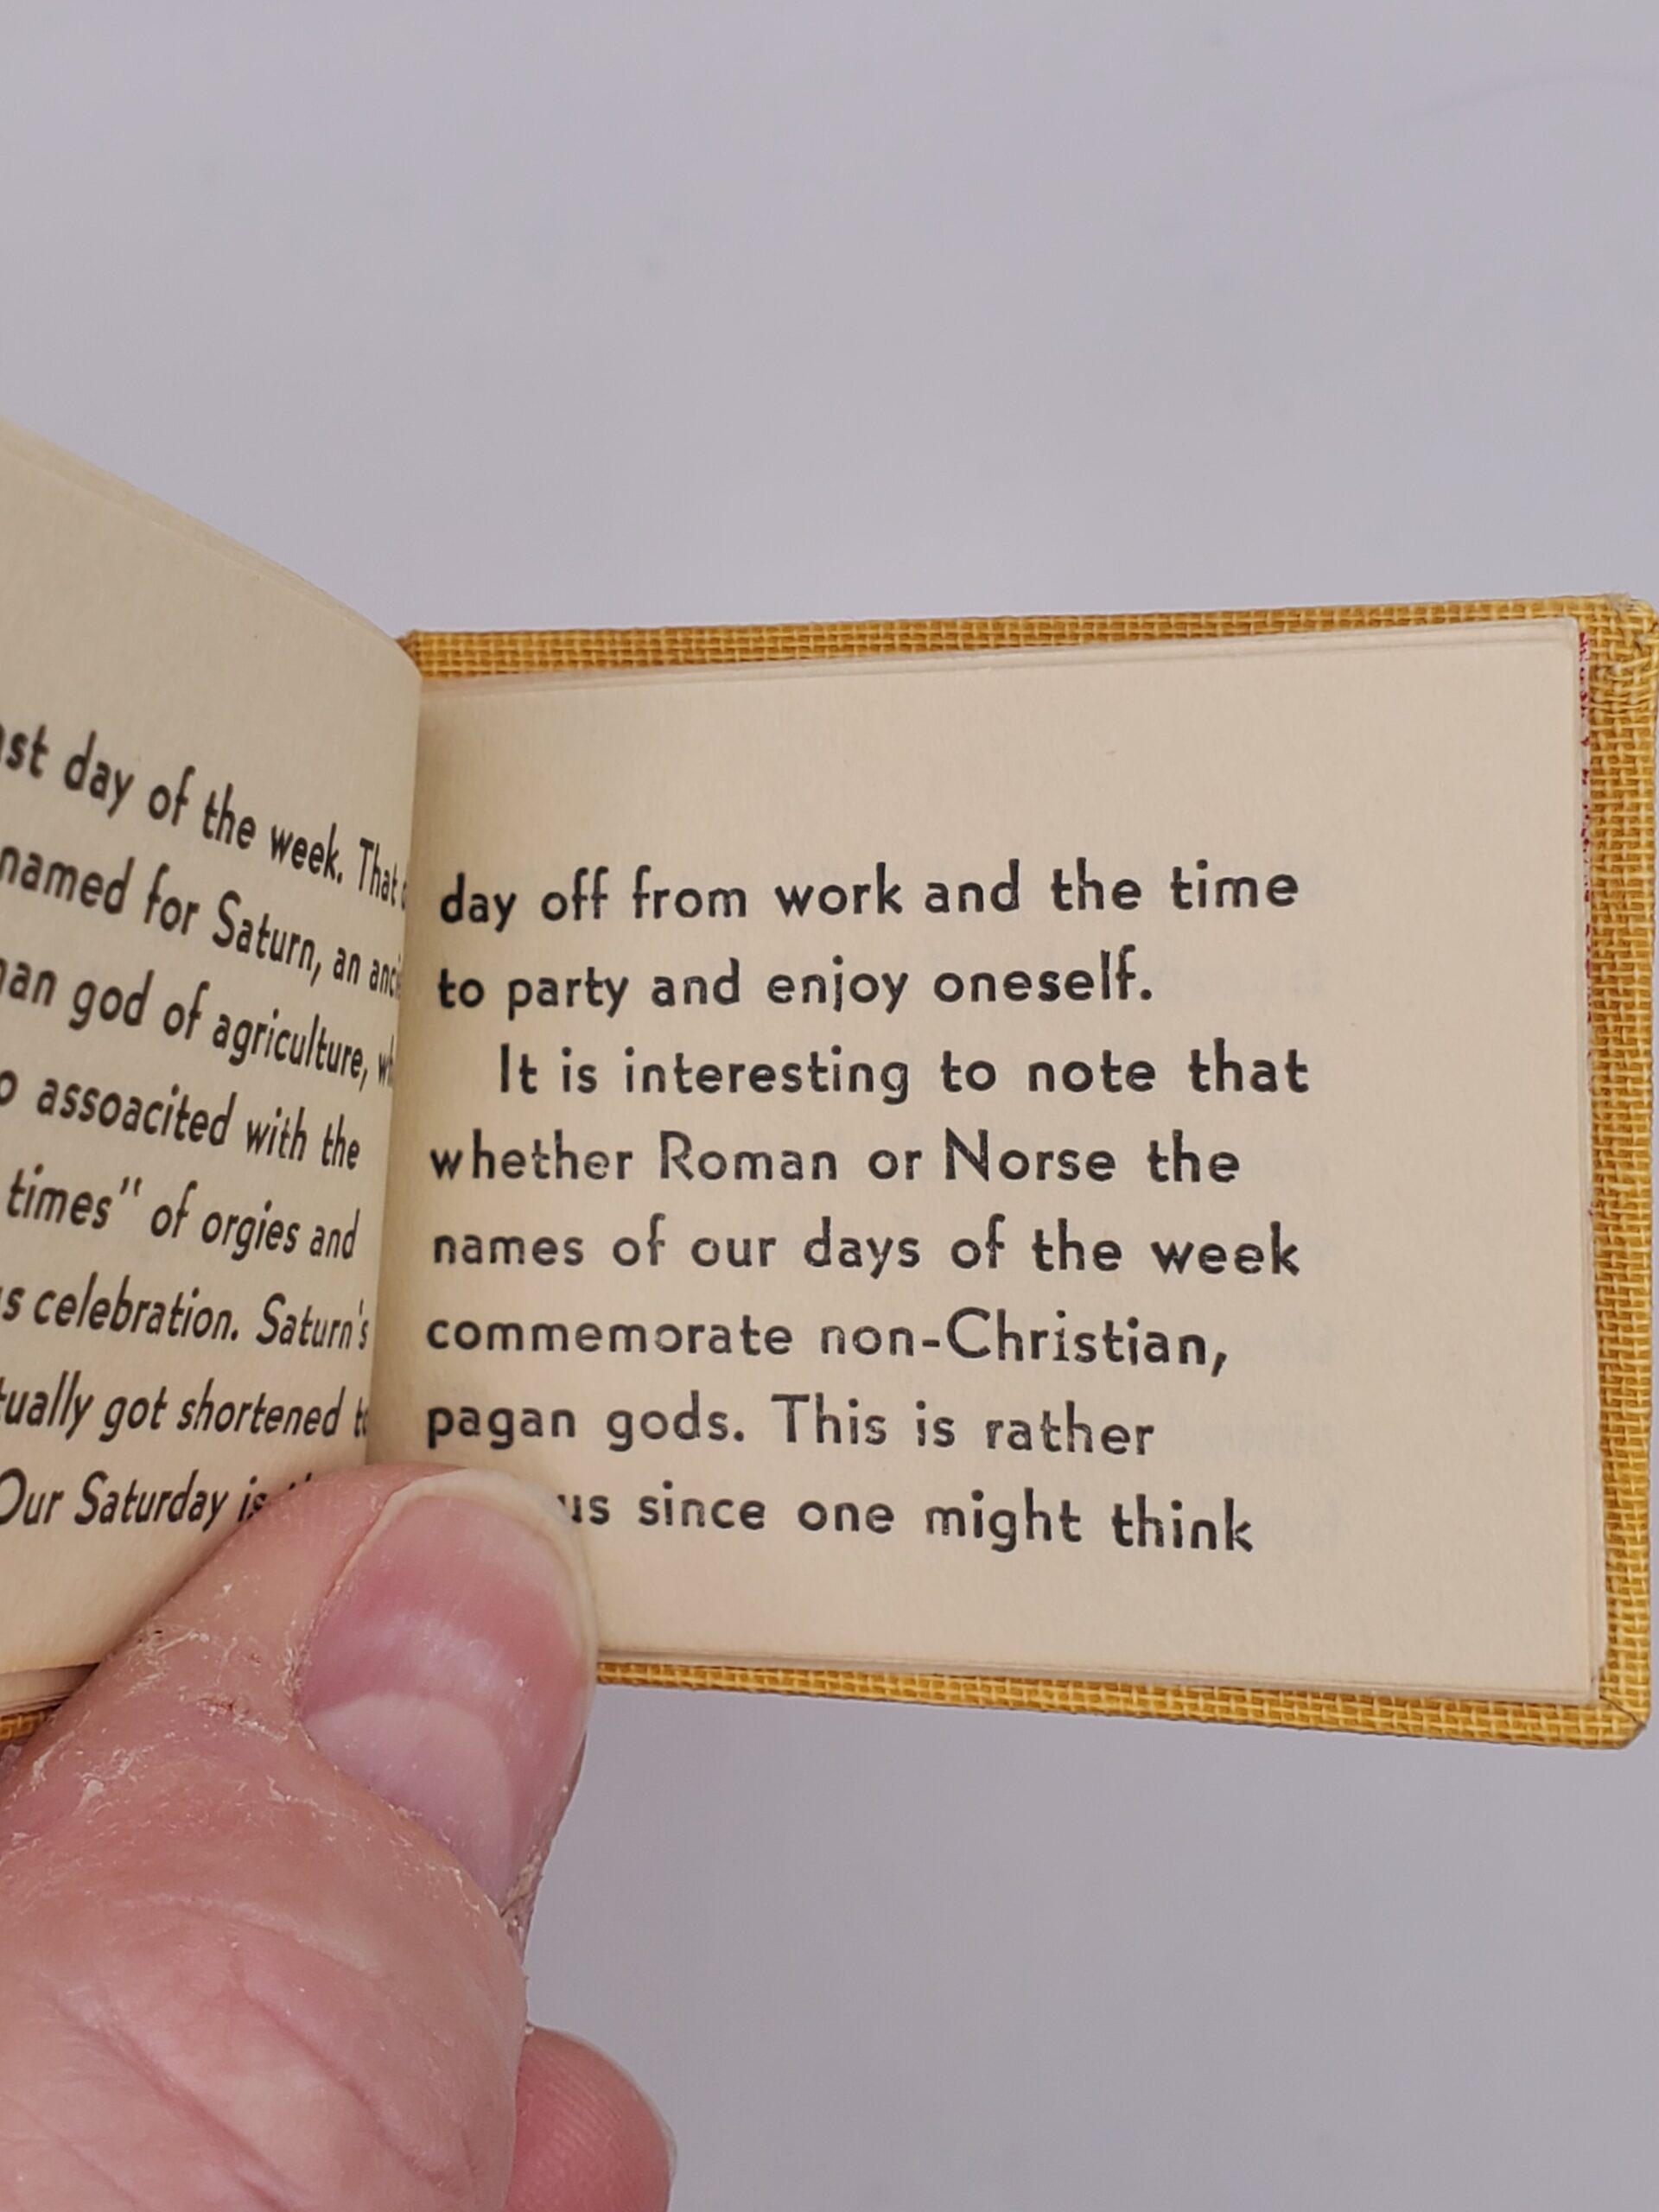 day of the week. That
named for Saturn, an
god of agriculture,
assoacited with the
times" of orgies and
celebration. Saturn's
got shortened
Our Saturday
day off from work and the time
to party and enjoy oneself.
It is interesting to note that
whether Roman or Norse the
names of our days of the week
commemorate non-Christian,
pagan gods. This is rather
since one might think